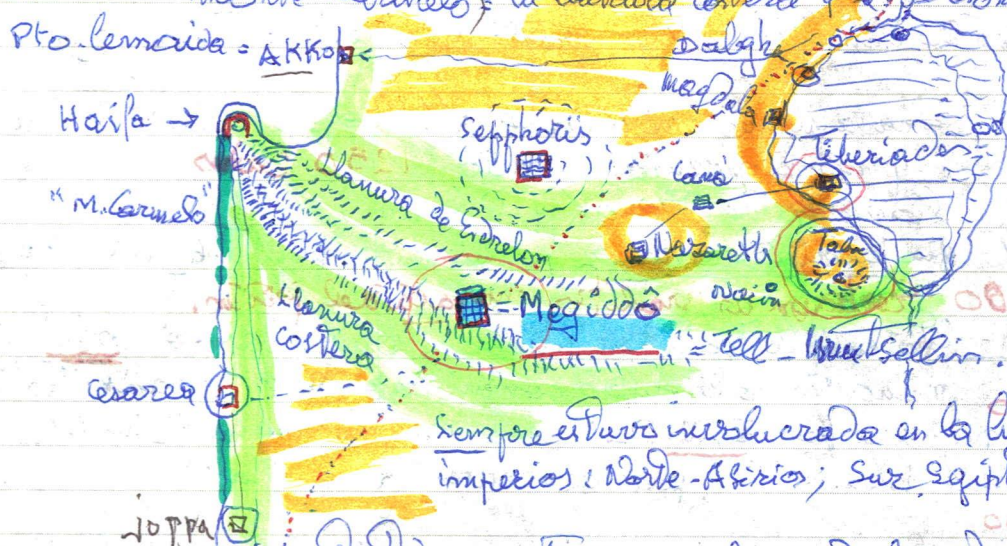 Pto. lemaida = AKKO
Dalgha
Magdala
Haifa →
Sepphóris
Tiberiades
Caná
"M. Carmelo"
Llanura de Esdrelon
Nazareth
Tabor
Naim
= Megiddô
Llanura
Costera
= Tell - Sellim.
Cesarea
Siempre estuvo involucrada en la
imperios: Norte - Asirios; Sur, Egip
Joppa